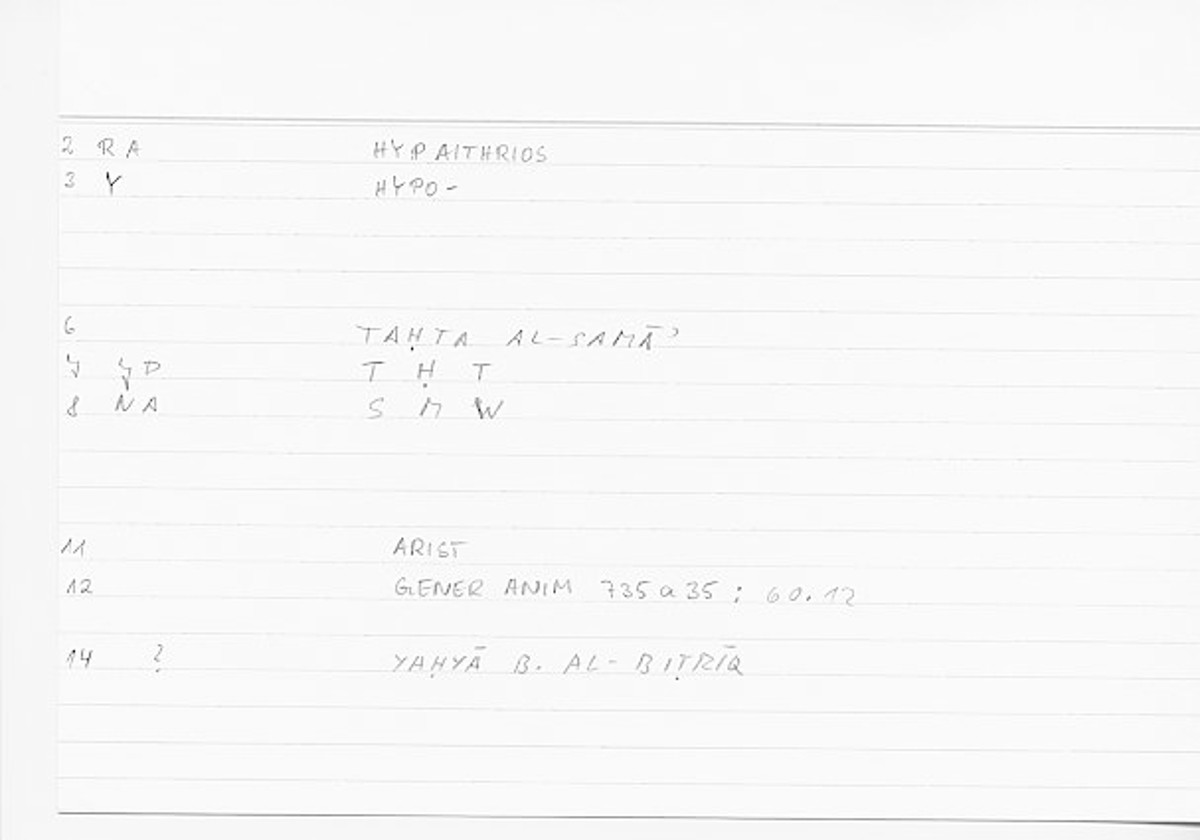 2 RA HYPAITHRIOS
3 Y HYPO-
6 TAḤTA AL-SAMĀʾ
7 D T Ḥ T
8 NA S M W
11 ARIST
12 GENER ANIM 735a35 : 60.12
14 ? YAḤYĀ B. AL-BIṬRĪQ